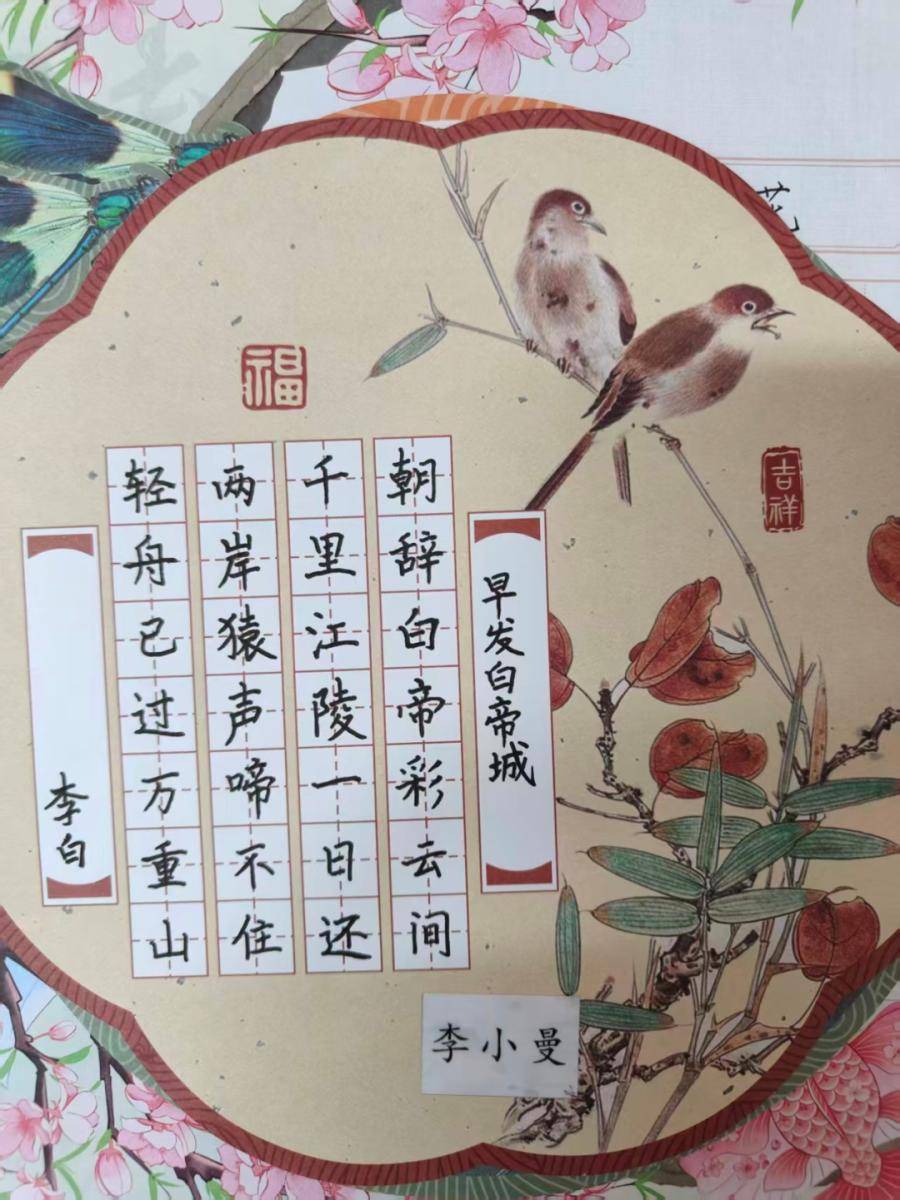 早发白帝城
朝辞白帝彩云间
千里江陵一日还
两岸猿声啼不住
轻舟已过万重山
李白
福
吉祥
李小曼